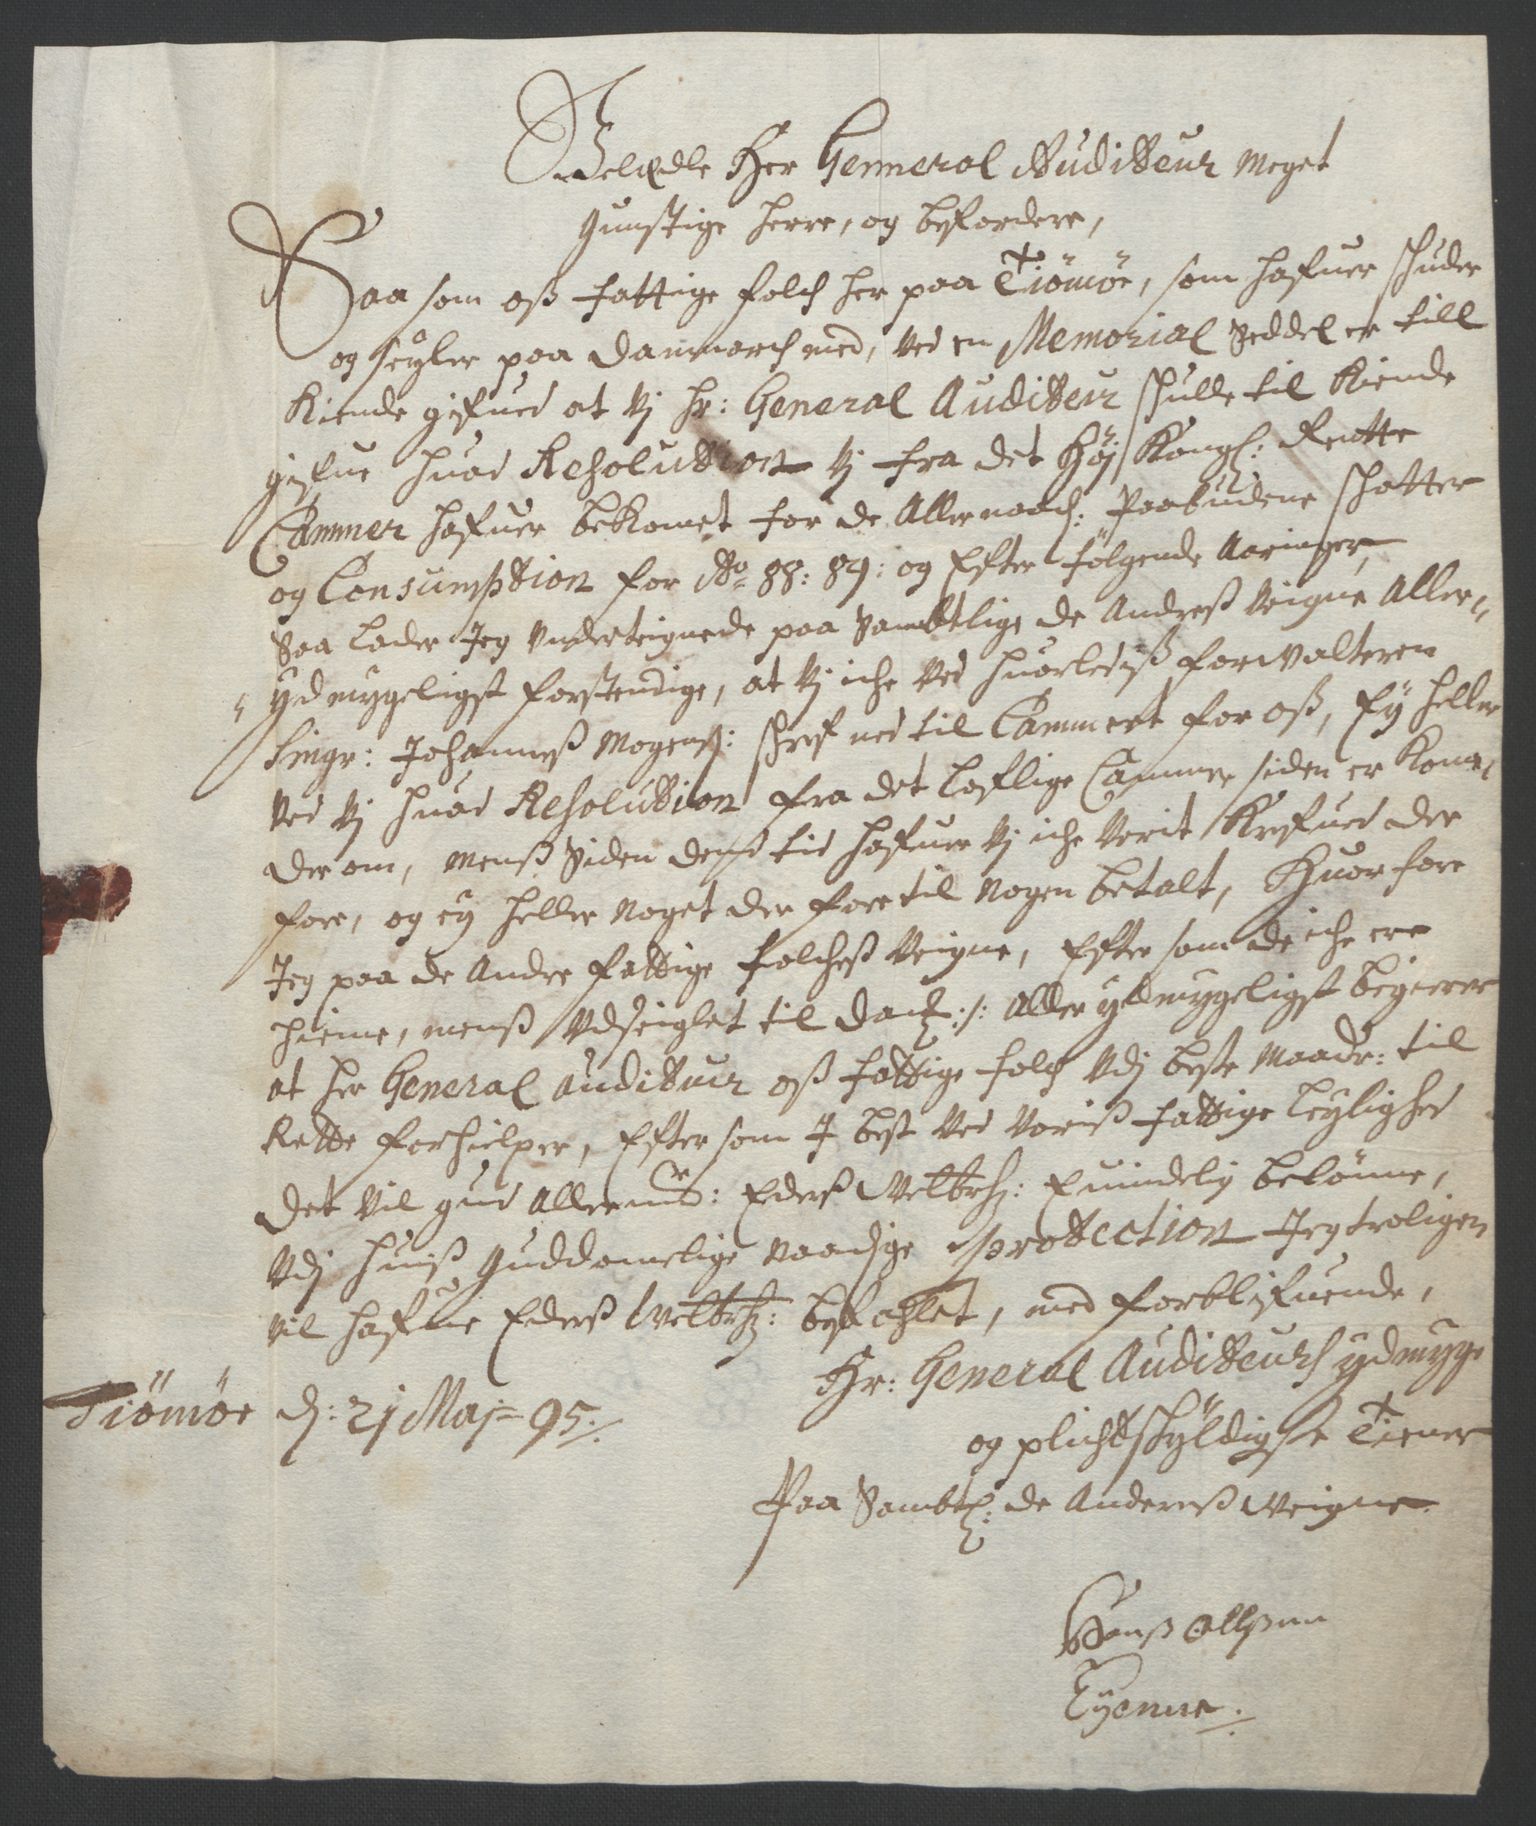 Velædle Her Gennerol Auditteur Meget
gunstige herre, og befordere,
Saa som oß fattige folch her paa Tiömöe, som hafuer schuder
og seigler paa Danmarch med, Ved en Memorial Seddel er till
Kiende gifued at Vj Hr: General Auditteur schulle til Kiende
gifue huad Resolution Vj fra det Høj Kongl: Rentte
Cammer hafuer bekomet for de Allernaad: Paabudene schatter
og Consumption for Ao 88: 89: og Efter følgende Aaringer,
Saa lader Jeg Underteignede paa Sambtlige de Andreß Veigne Aller-
ydmygeligst forstendige, at Vj iche Ved huorledeß forwalteren
Singr: Johanneß Mogenß: schref ned til Cammert for oß, Ey heller
Ved Vj huad Resolution fra det Loflige Cammer siden er Kom-
der om, menß Siden denß tid hafuer Vj iche Verit Krefued der
fore, og ey heller Noget der fore til Nogen betalt, Huor fore
Jeg paa de Andre fattige folcheß Veigne, Efter som de iche ere
hieme, menß Udseiglet til Danß:/: Aller ydmygeligst begierer
at her General auditteur oß fattige folch Udj beste Maader: til
Rette forhielper, Efter som I best Ved Voriß fattige Leylighed
Det Vil gud Allern: Ederß Welbrh: Euindelig belönne,
Udj huiß Guddomelige Naadige protection Jeg troligen
vil hafue Ederß Welbrh: befahlet, med forblifuende,
Hr: General Auditteurs ydmyge
Tiömöe d: 21 Maj = 95:
og plichtschyldigste Tiener
Paa Sambtl: de Andereß Weigne
Hanß Ollßenn
Tyenne: